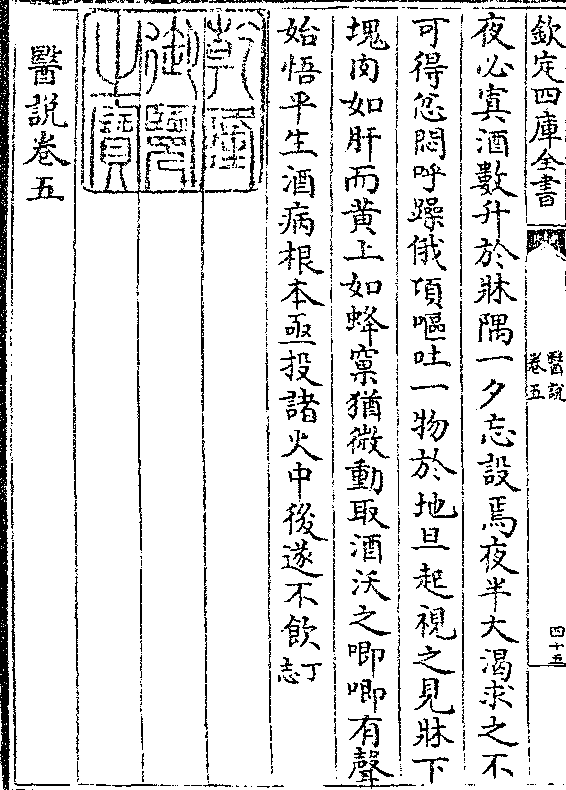 欽定四庫全書
醫説
卷五
四十五
夜必寘酒數升於牀隅一夕忘設焉夜半大渴求之不
可得忿悶呼躁俄頃嘔吐一物於地旦起視之見牀下
塊肉如肝而黄上如蜂窠猶微動取酒沃之唧唧有聲
始悟平生酒病根本亟投諸火中後遂不飲丁志
乾隆御覽之寶
醫説卷五